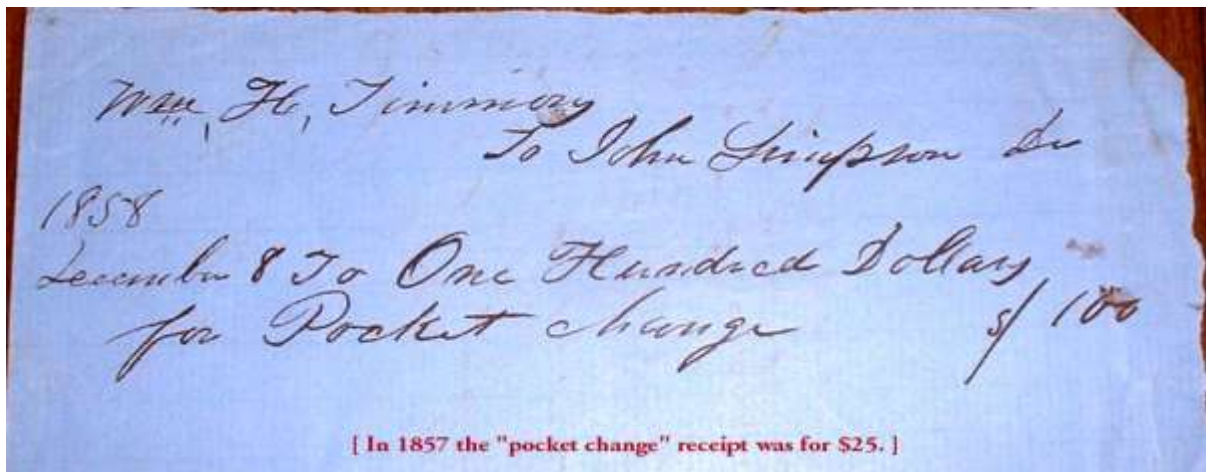 Wm, H, Timmory
To John Simpson Dr
1858
December 8 To One Hundred Dollars
for Pocket change $/100
[ In 1857 the "pocket change" receipt was for $25. ]